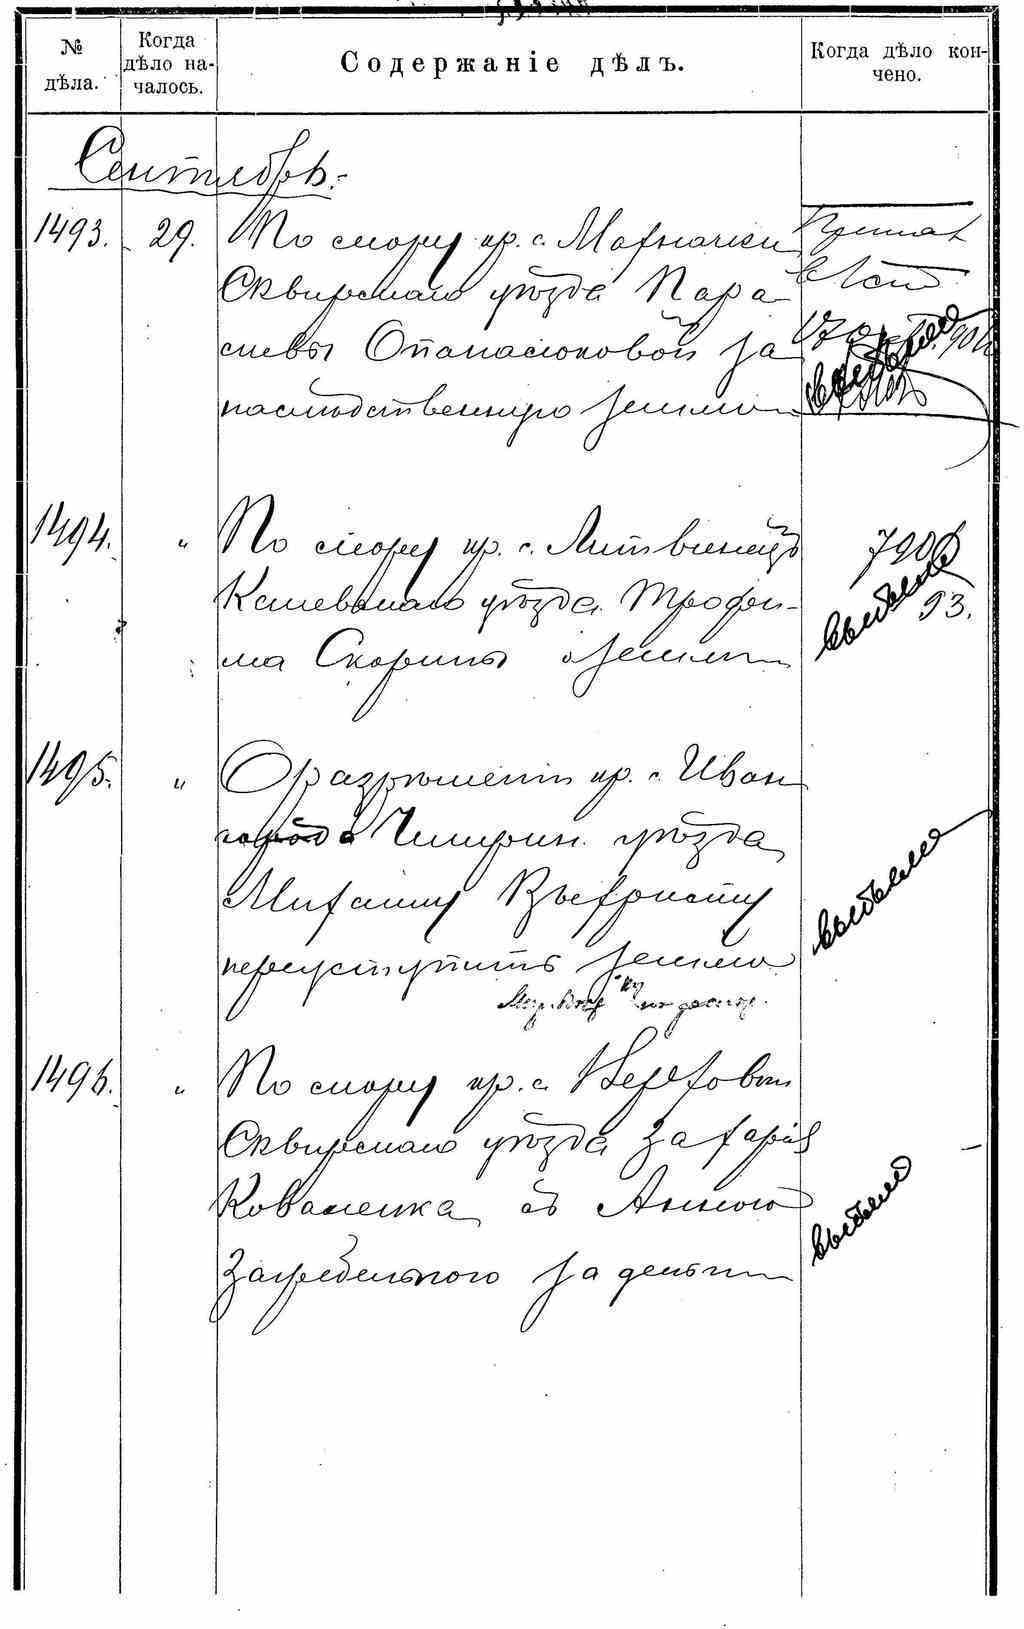 № дѣла.
Когда дѣло на-
чалось.
Содержаніе дѣлъ.
Когда дѣло кон-
чено.
Сентябрь.
1493. 29. По спору кр. с. Мохначки
Сквирскаго уѣзда Пара-
скевы Опанасюковой за
наслѣдственную землю
1494. " По спору кр. с. Литвинецъ
Каневскаго уѣзда Трофи-
ма Скорины о земли
790
93.
выбыло
1495. " О разрѣшеніи кр. с. Иван
города Чигирин. уѣзда
Михаилу
переуступить землю
выбыло
1496. " По спору кр. с.
Сквирскаго уѣзда Захарія
Коваленка съ Анною
Загребельною за деньги
выбыло